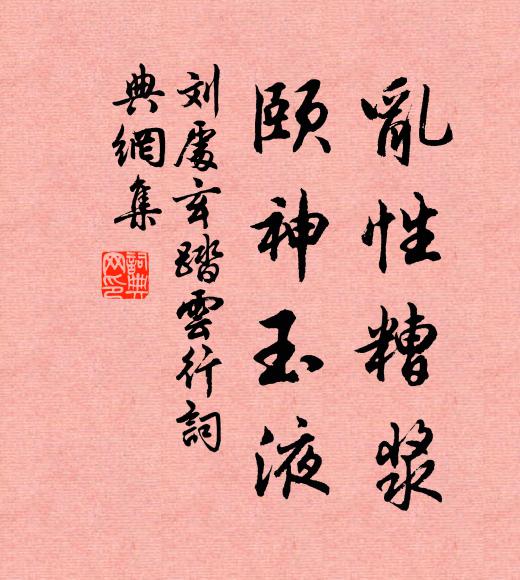 亂性糟漿
頤神玉液
刘處玄踏雲行詞
典網集
詞典网印